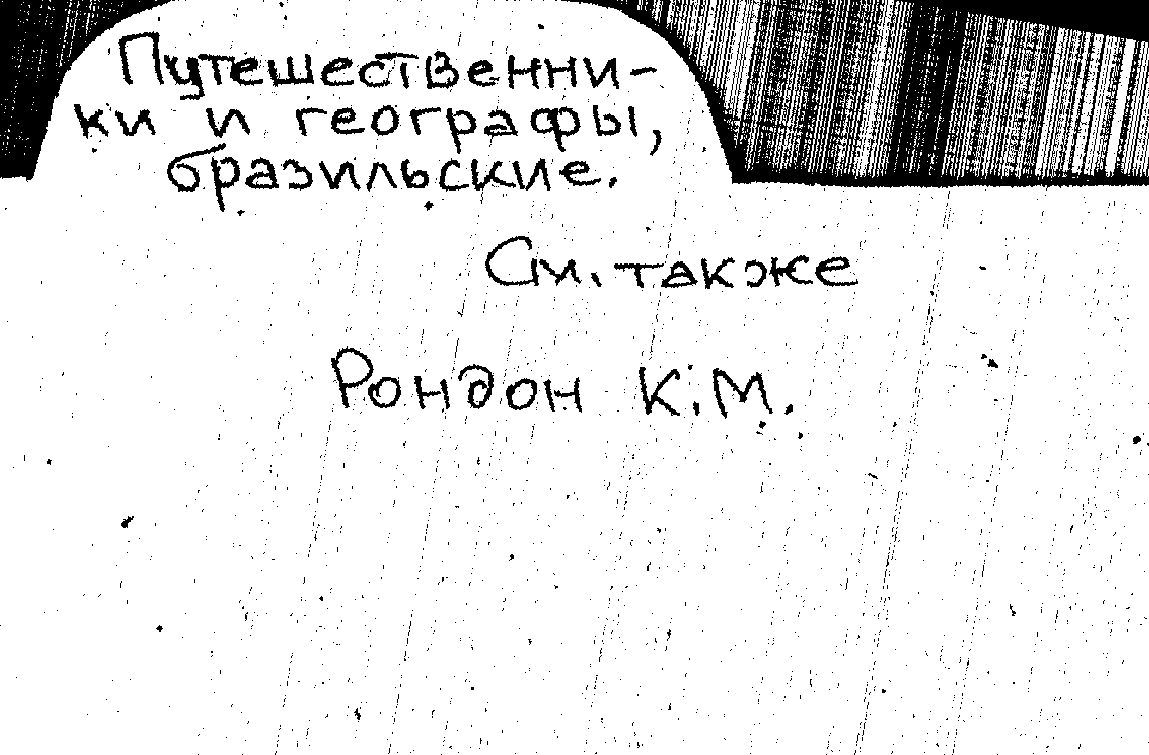 Путешественни-
ки и географы,
бразильские.
См. также
Рондон К.М.